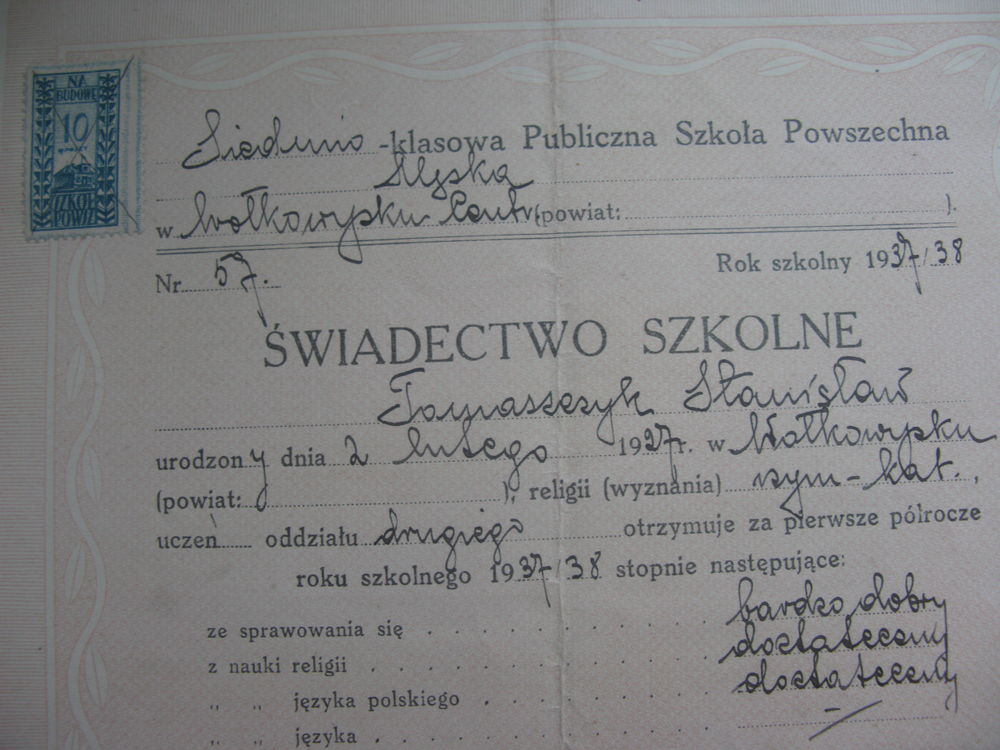 NA
BUDOWĘ
10
SZKÓŁ
POWSZ.
Siedmio -klasowa Publiczna Szkoła Powszechna
Męska
w Wołkowysku Centr (powiat: ).
Nr. 57. Rok szkolny 1937/38
ŚWIADECTWO SZKOLNE
Tomaszczyk Stanisław
urodzony dnia 2 lutego 1927 r. w Wołkowysku
(powiat: ), religii (wyznania) rzym-kat.,
uczeń oddziału drugiego otrzymuje za pierwsze półrocze
roku szkolnego 1937/38 stopnie następujące:
ze sprawowania się bardzo dobry
z nauki religii dostateczny
„ „ języka polskiego dostateczny
„ „ języka —